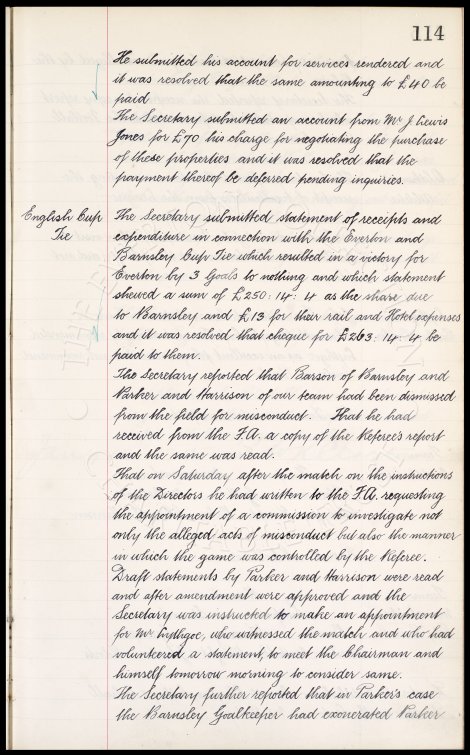 114
He submitted his account for services rendered and
it was resolved that the same amounting to £40 be
paid
The Secretary submitted an account from Mr J Lewis
Jones for £70 his charge for negotiating the purchase
of these properties and it was resolved that the
payment thereof be deferred pending inquiries.
English Cup
Tie
The Secretary submitted statement of receipts and
expenditure in connection with the Everton and
Barnsley Cup Tie which resulted in a victory for
Everton by 3 Goals to nothing and which statement
shewed a sum of £250:14:4 as the share due
to Barnsley and £13 for their rail and Hotel expenses
and it was resolved that cheque for £263:14:4 be
paid to them.
The Secretary reported that Barson of Barnsley and
Parker and Harrison of our team had been dismissed
from the field for misconduct. That he had
received from the F.A. a copy of the Referee's report
and the same was read.
That on Saturday after the match on the instructions
of the Directors he had written to the F.A. requesting
the appointment of a commission to investigate not
only the alleged acts of misconduct but also the manner
in which the game was controlled by the Referee.
Draft statements by Parker and Harrison were read
and after amendment were approved and the
Secretary was instructed to make an appointment
for Mr Lythgoe, who witnessed the match and who had
volunteered a statement, to meet the Chairman and
himself tomorrow morning to consider same.
The Secretary further reported that in Parker's case
the Barnsley Goalkeeper had exonerated Parker